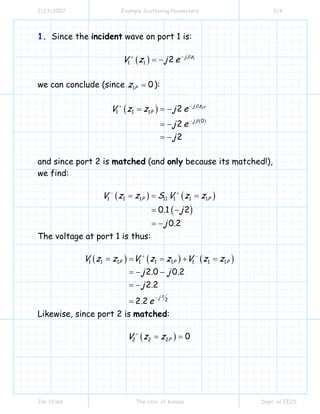 2/23/2007 Example Scattering Parameters 2/4
1. Since the incident wave on port 1 is:
V₁⁺(z₁) = −j2 e^{−jβz₁}
we can conclude (since z₁P = 0):
V₁⁺(z₁ = z₁P) = −j2 e^{−jβz₁P}
= −j2 e^{−jβ(0)}
= −j2
and since port 2 is matched (and only because its matched!),
we find:
V₁⁻(z₁ = z₁P) = S₁₁ V₁⁺(z₁ = z₁P)
= 0.1(−j2)
= −j0.2
The voltage at port 1 is thus:
V₁(z₁ = z₁P) = V₁⁺(z₁ = z₁P) + V₁⁻(z₁ = z₁P)
= −j2.0 − j0.2
= −j2.2
= 2.2 e^{−jπ/2}
Likewise, since port 2 is matched:
V₂⁺(z₂ = z₂P) = 0
Jim Stiles The Univ. of Kansas Dept. of EECS